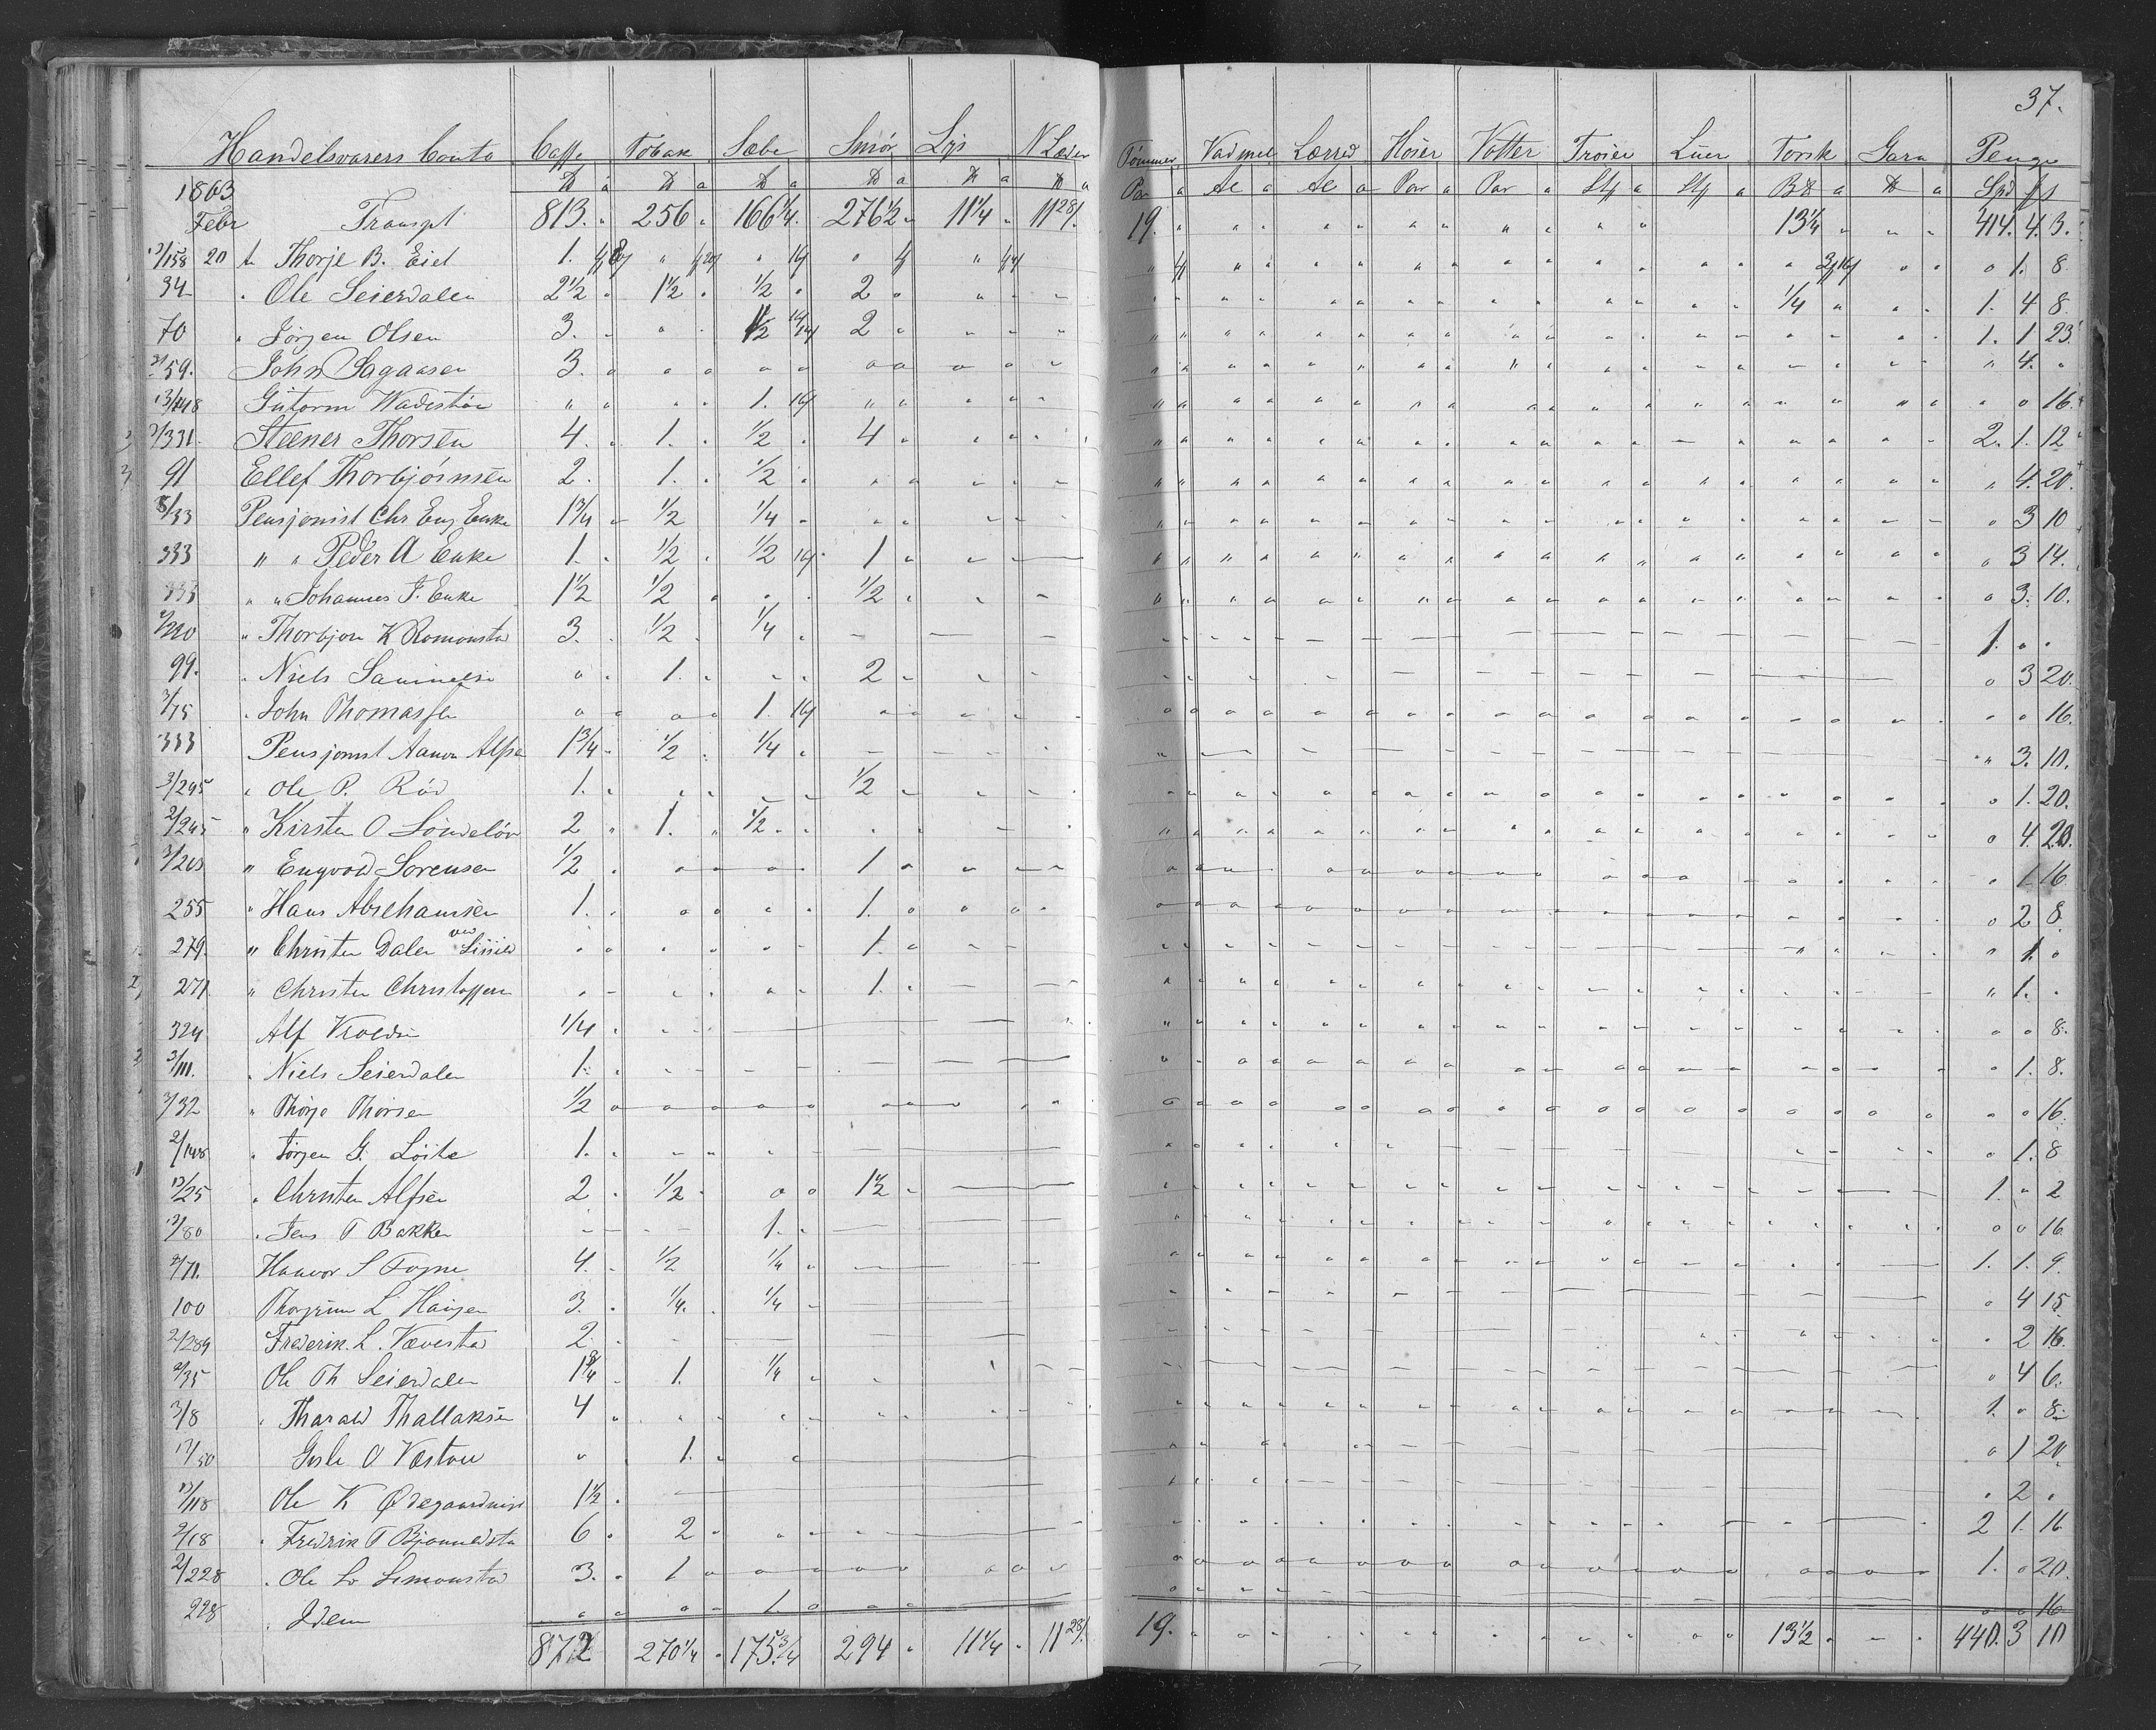 37.
Handelsvarers Conto Caffe Tobak Sæbe Smør Lys N Læder Tømmer Vadmel Lærred Hoser Votter Troier Luer Torsk Garn Penge
1863 ℔ a ℔ a ℔ a ℔ a ℔ a ℔ a Par a Al a Al a Par a Par a Stk a Stk a B℔ a ℔ a Spd f s
Febr Transpt 813. 256 166 1/4. 276 1/2 11 1/4 11 28/. 19. 13 1/4 414. 4. 3.
13/158 20 Thorje B. Eiet 1. 1. 8
34 " Ole Seierdalen 2 1/2 1 1/2 1/2 2 1/4 1. 4 8
70 " Jørgen Olsen 3. 1/2 2 1. 1 23
59. John Sagaasen 3. " 4. "
13/148 Gutorm Wadestøe 1. 16.
2/331. Steener Thorsen 4. 1. 1/2 4 2. 1. 12
91 Ellef Thorbjørnsen 2. 1. 1/2 4. 20.
8/33 Pensjonist Chr Eng Enke 1 3/4 1/2 1/4 3 10
333 " " Peder A Enke 1. 1/2 1/2 1 3 14.
333 " " Johannes J. Enke 1 1/2 1/2 1/2 3. 10.
2/220 " Thorbjørn K Romonstad 3. 1/2 1/4 1. " "
99. " Niels Samuelsen 1. 2 3 20.
3/15 " John Thomassen 1. 16.
333 Pensjonist Aanon Alfsen 1 3/4 1/2 1/4 3. 10.
3/295 " Ole P. Röd 1. 1/2 1. 20.
2/245 " Kirsten O Löndelöv 2 1. 1/2 4. 20.
3/263 " Engvold Sorensen 1/2 1 1 16
255 " Hans Abrehamsen 1. 1. 2 8.
279. " Christen Dalen ved 1. 1. "
271 " Christen Christoffersen 1. 1. "
324 Alf Kroldsen 1/4 8.
3/111. " Niels Seierdalen 1. 1. 8.
3/32 " Thorje Thorsen 1/2 16.
2/148 " Jörgen G. Löite 1. 1. 8
13/25 " Christen Alfsen 2 1/2 1 1/2 1. " 2
13/80 " Jens T Bakken 1. 16
2/71. Haavor S Fogne 4. 1/2 1/4 1. 1. 9.
100 Thorgrim L Haugen 3. 1/4. 1/4 4 15.
2/289 Frederik. L. Vævestad 2. 2 16.
2/35 Ole Th Seierdalen 1 3/4 1. 1/4 4 6.
3/8 " Tharald Thallaksen 4 1. " 8.
13/50 O 1. 1 20
13/118 Ole K Ødegaard 1 1/2 2 "
2/18 " Fredrik T 6 2 2 1. 16
2/228 " Ole Lemonstad 3. 1 1. " 20.
228 " Idem 1. 16
872 270 1/4 175. 3/4 294 11 1/4 11 28/. 19. 13 1/2 440. 3 10